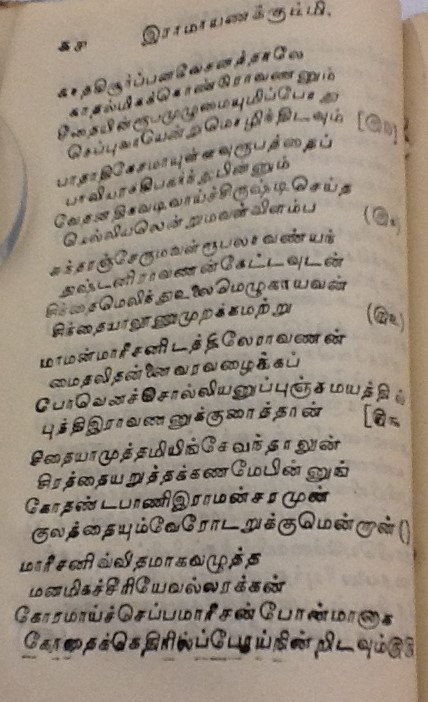 இராமாயணக்கும்மி.
காதகிசூர்ப்பனவேசனத்தாலே
காதல்மிகக்கொண்டிராவணனும்
சீதையின்ரூபமுழுமையுமிப்போது
செப்புவாயென்றுமொழிந்திடவும்
பாதாதிகேசமாயுள்ளவுரூபத்தைப்
பாவியரக்கிபகர்ந்தபின்னும்
வேதனதிகவடிவாய்ச்சிருஷ்டிசெய்த
மெல்லியலென்றுமவள்விளம்ப
கந்தாஞ்சேருமவள்ரூபலாவண்யங்
துஷ்டனிராவணன்கேட்டவுடன்
சிந்தைமெலிந்துஉலைமெழுகாயவன்
சிந்தையாலூணுமுறக்கமற்று
மாமன்மாரீசனிடத்திலேராவணன்
மைதலிதன்னைவரவழைக்கப்
போவெனச்சொல்லியனுப்புஞ்சமயத்தில்
புத்திஇராவணனுக்குரைத்தான்
சீதையாமுத்தமியிங்கேவந்தாலுன்
சிரத்தையறுத்தக்கணமேபின்னுங்
கோதண்டபாணிஇராமன்சரமுன்
குலத்தையும்வேரோடறுக்குமென்றான் ()
மாரீசனிவ்விதமாகவழுத்த
மனமிகச்சீரியேவல்லரக்கன்
கோரமாய்ச்செப்பமாரீசன்பொன்மானாக
கோதைக்கெதிரில்ப்போய்நின்றிடவும்